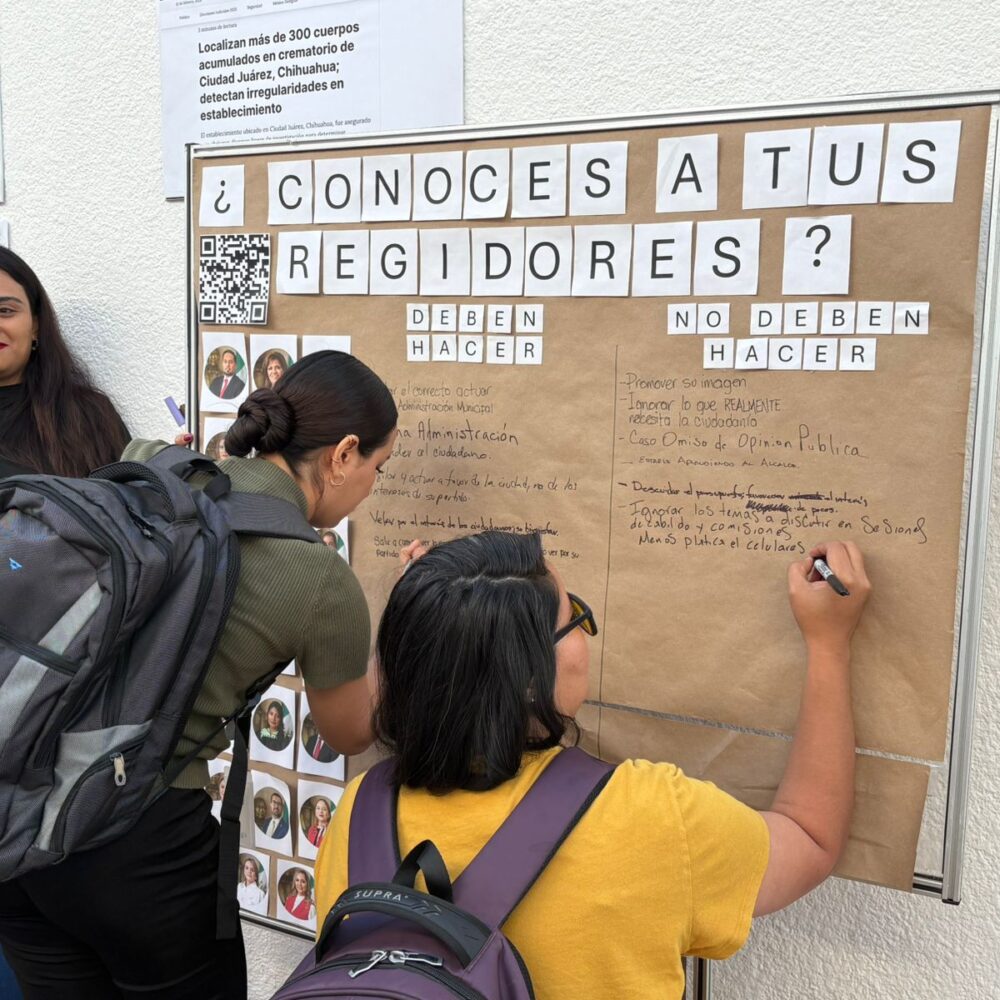 Seguridad
3 minutos de lectura
Localizan más de 300 cuerpos
acumulados en crematorio de
Ciudad Juárez, Chihuahua;
detectan irregularidades en
establecimiento
El establecimiento ubicado en Ciudad Juárez, Chihuahua, fue asegurado
¿CONOCES A TUS
REGIDORES?
DEBEN
HACER
el correcto actuar
Administración Municipal
Administración
al ciudadano.
y actuar a favor de la ciudad, no de los
intereses de su partido.
Velar por el interés de los ciudadanos,
ver por su
partido
NO DEBEN
HACER
-Promover su imagen
-Ignorar lo que REALMENTE
necesita la ciudadanía
- Caso Omiso de Opinion Publica
- Estarle Aplaudiendo al Alcalde
- Descuidar el presupuesto al interés
de pocos.
-Ignorar los temas a discutir en Sesiones
de cabildo y comisiones
Menos platica el celulares
SUPRA